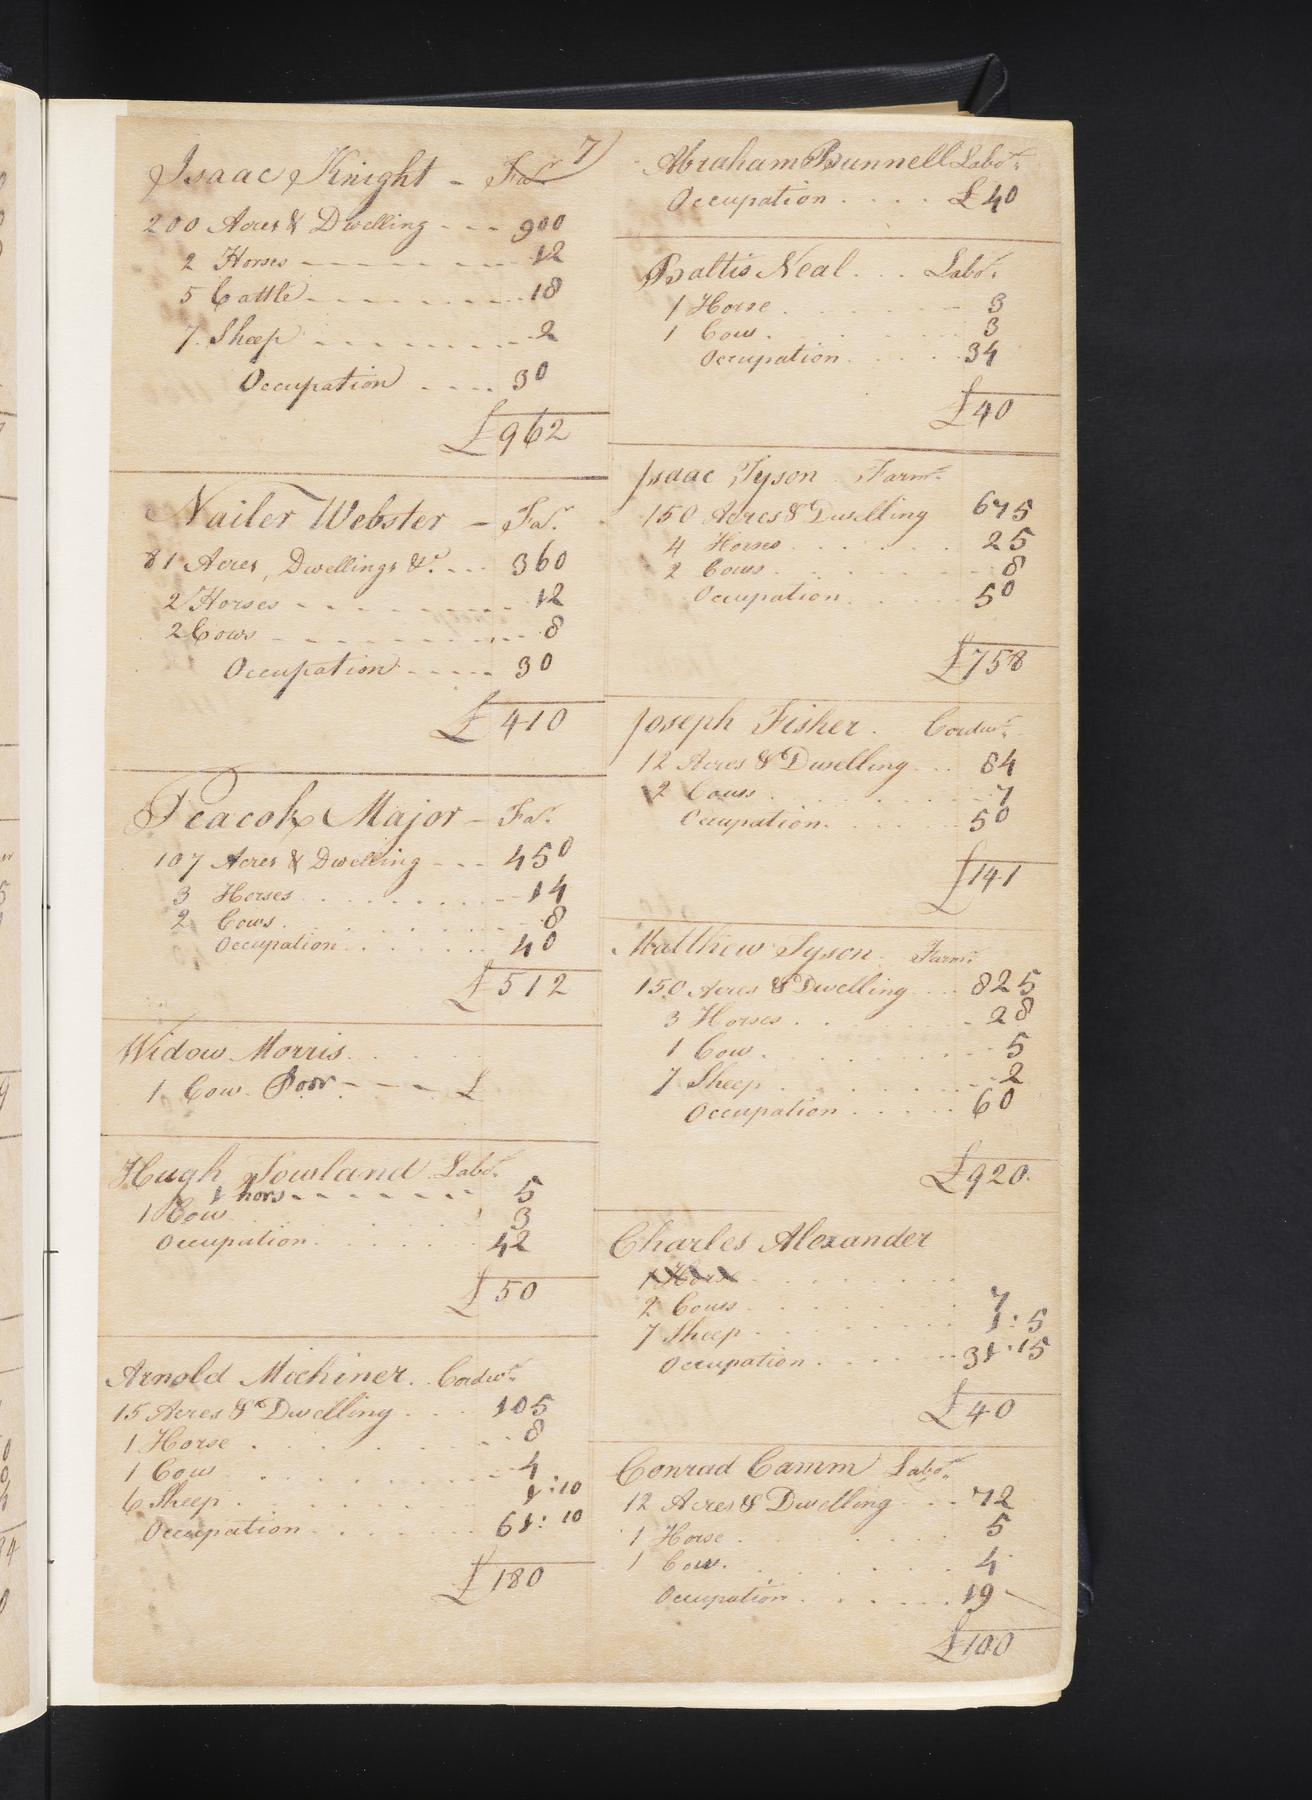 7
Isaac Knight - Far.
200 Acres & Dwelling - - - 900
2 Horses - - - - - - - 12
5 Cattle - - - - - - - 18
7 Sheep - - - - - - - 2
Occupation - - - - 30
£962
Nailer Webster - Far.
81 Acres, Dwellings &c. - - - 360
2 Horses - - - - - - - 12
2 Cows - - - - - - - 8
Occupation - - - - - 30
£410
Peacock Major - Far.
107 Acres & Dwelling - - - 450
3 Horses . . . . . . . 14
2 Cows . . . . . . . 8
Occupation . . . . . 40
£512
Widow Morris . . . . .
1 Cow Poor - - - - £
Hugh Lowland Labr.
1 hors - - - - - - 5
1 Cow . . . . . . 3
Occupation . . . . . 42
£50
Arnold Michiner . Cordwr.
15 Acres & Dwelling . . . 105
1 Horse . . . . . . 8
1 Cow . . . . . . 4
6 Sheep . . . . . . 1:10
Occupation . . . . . 61:10
£180
Abraham Bunnell Labor.
Occupation . . . . £40
Baltis Neal . . . Labr.
1 Horse . . . . . . 3
1 Cow . . . . . . 3
Occupation . . . . . 34
£40
Isaac Tyson Farmr.
150 Acres & Dwelling 675
4 Horses . . . . . . 25
2 Cows . . . . . . 8
Occupation . . . . . 50
£758
Joseph Fisher . Cordwr.
12 Acres & Dwelling . . . 84
2 Cows . . . . . . 7
Occupation . . . . . 50
£141
Matthew Tyson Farmr.
150 Acres & Dwelling . . . 825
3 Horses . . . . . . 28
1 Cow . . . . . . 5
7 Sheep . . . . . . 2
Occupation . . . . . 60
£920
Charles Alexander
1 Horse . . . . . . .
2 Cows . . . . . . 7
7 Sheep . . . . . . 1:5
Occupation . . . . . 31:15
£40
Conrad Camm Labor.
12 Acres & Dwelling . . . 72
1 Horse . . . . . . 5
1 Cow . . . . . . 4
Occupation . . . . . 19
£100